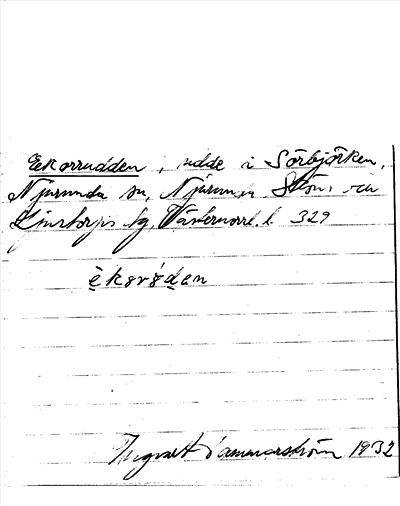 Ekorrudden, udde i Sörbjörken,
Njurunda sn, Njurunda Sköns och
Ljustorps tg, Västernorrl. l. 329
Ingvald Hammarström 1932